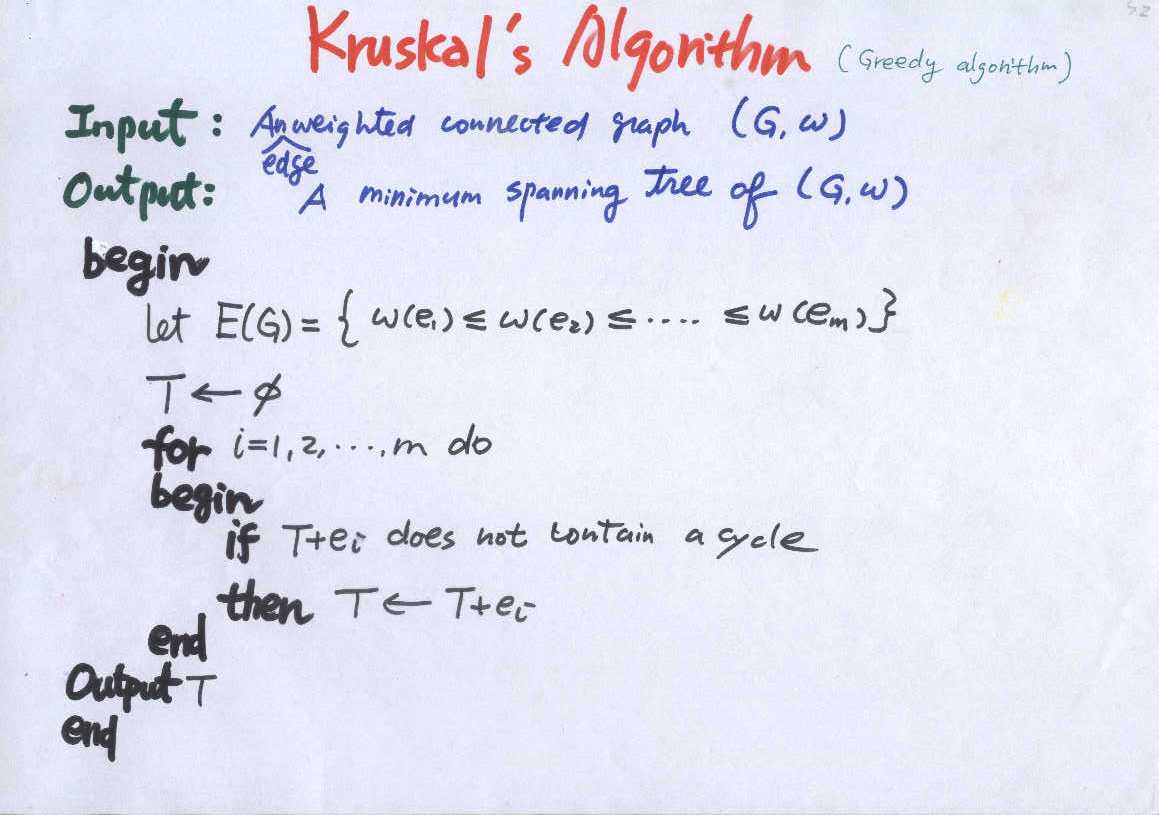 Kruskal's Algorithm (Greedy algorithm)
Input: An edge weighted connected graph (G, w)
Output: A minimum spanning tree of (G, w)
begin
let E(G) = { w(e₁) ≤ w(e₂) ≤ ····· ≤ w(eₘ)}
T ← ∅
for i=1, 2, ···, m do
begin
if T+eᵢ does not contain a cycle
then T ← T+eᵢ
end
Output T
end